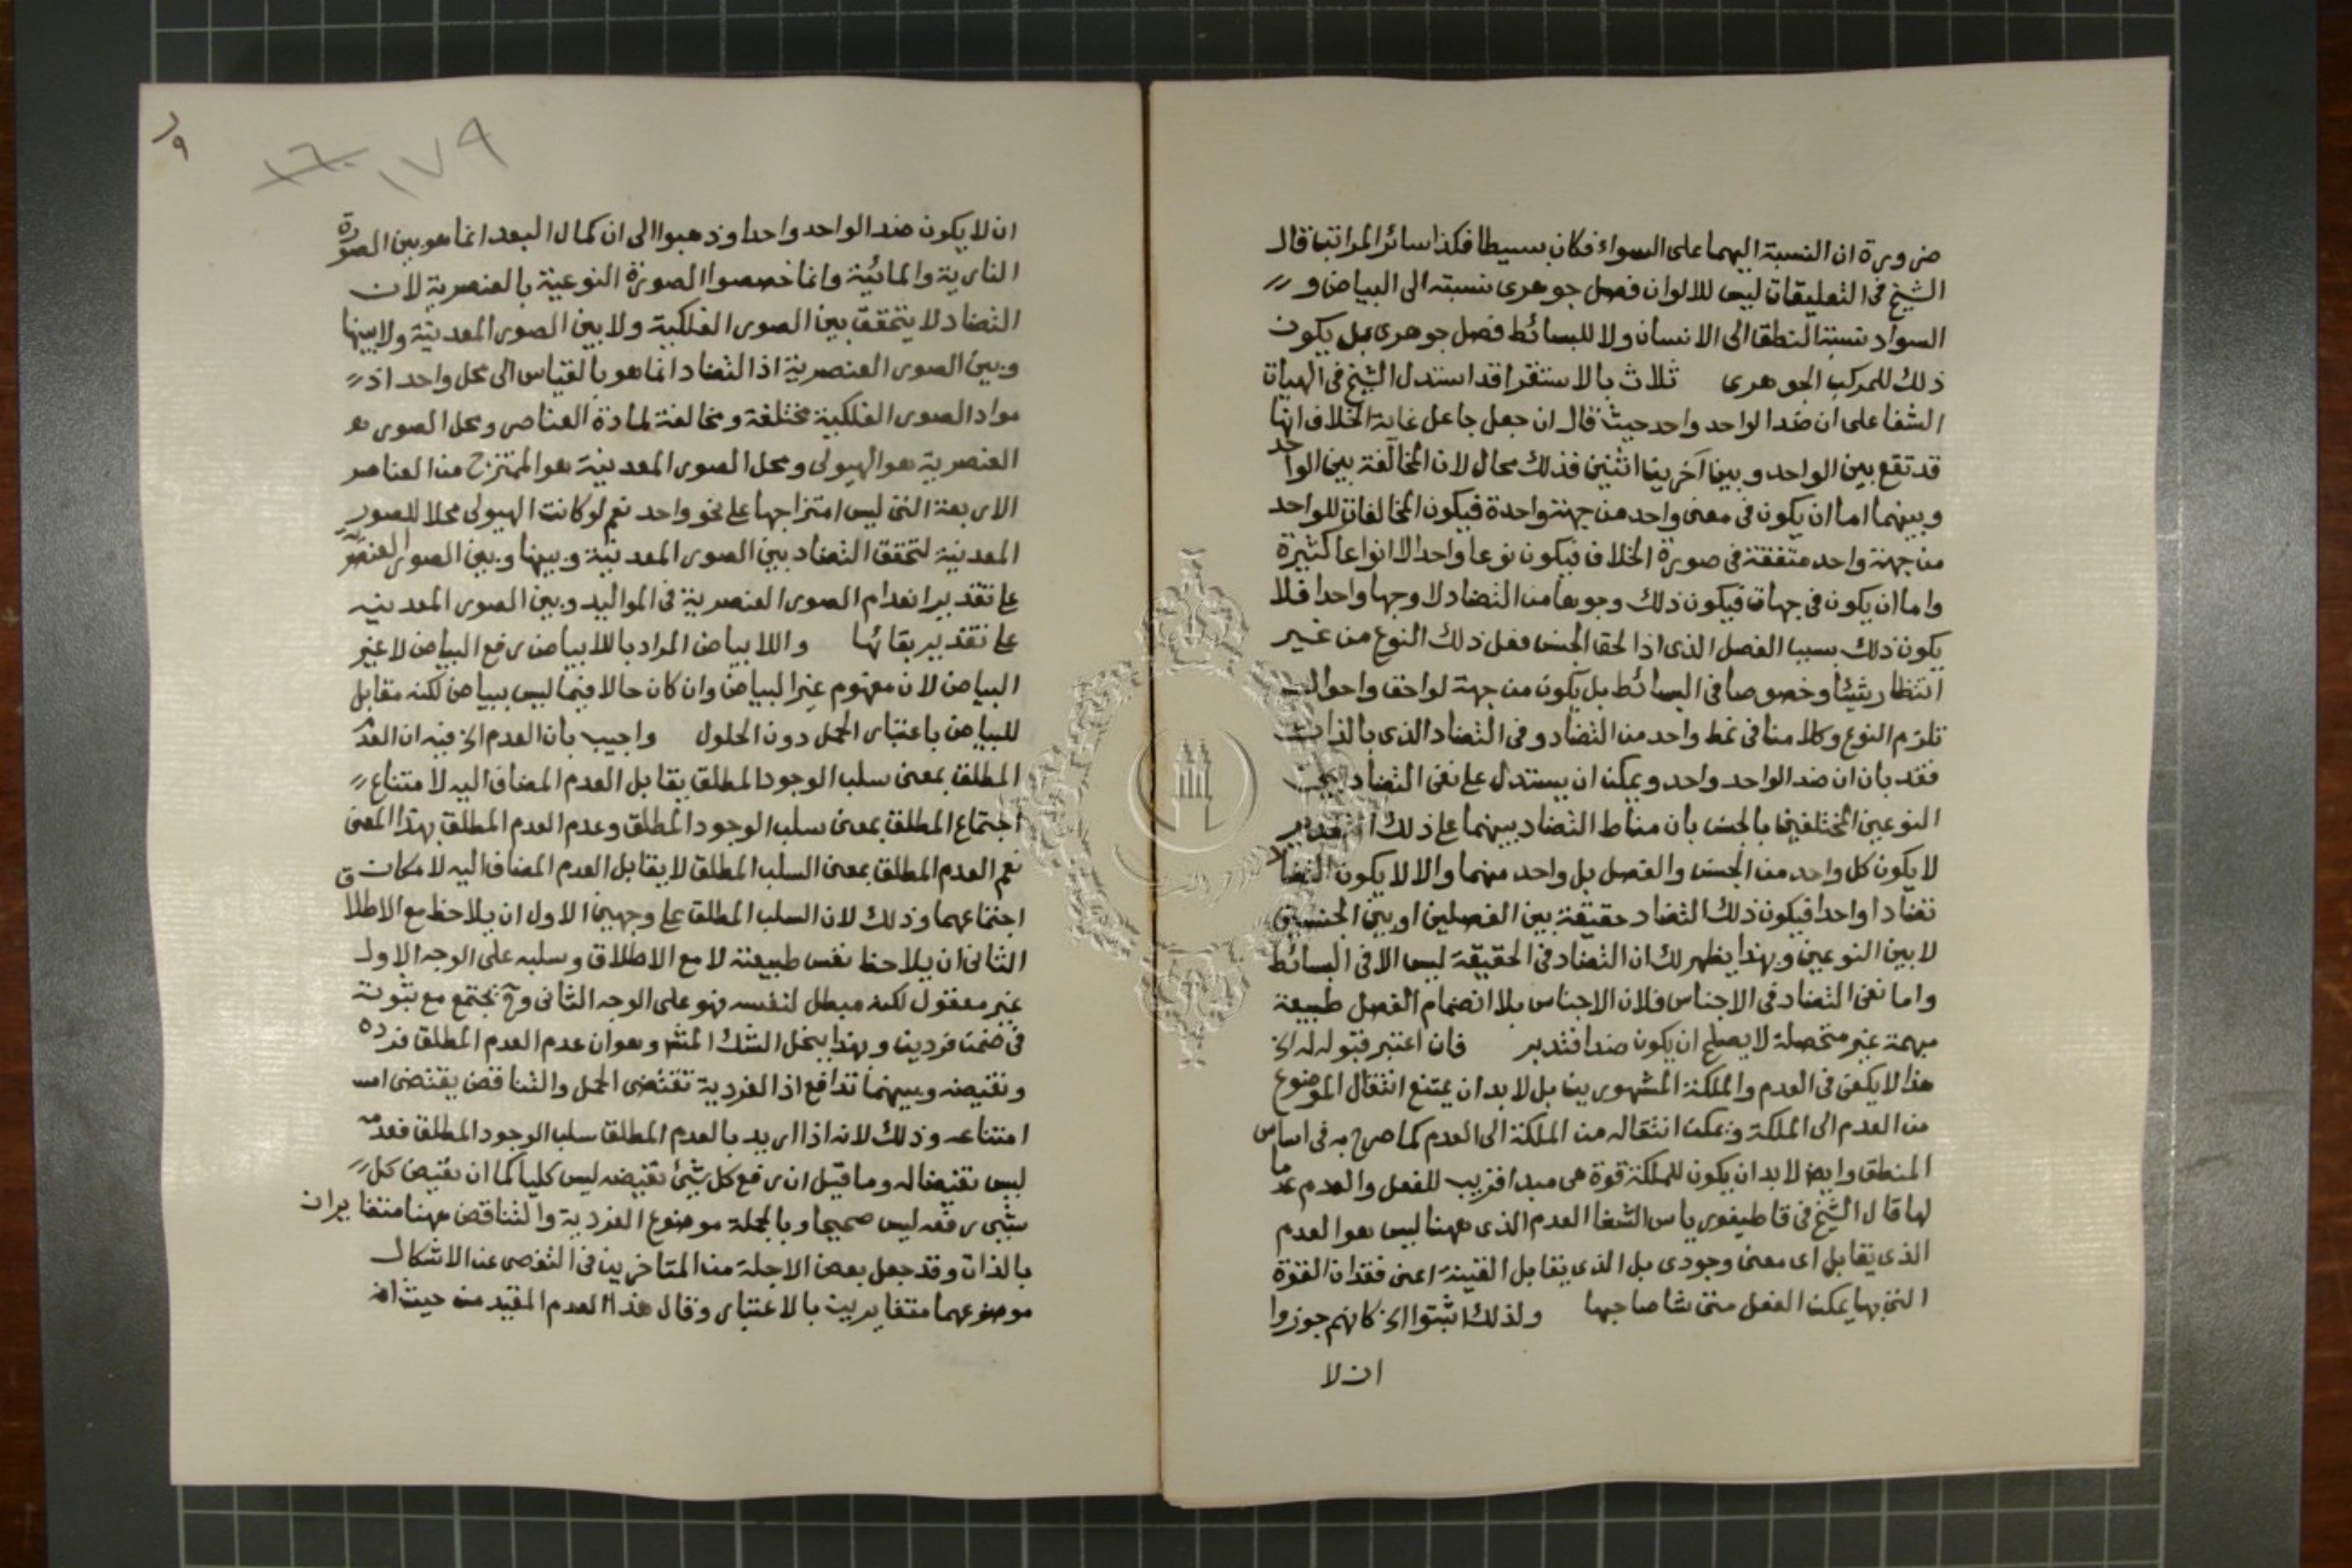 ضرورة ان النسبة اليهما على السواء فكان بسيطا فكذا سائر المراتب قال
الشيخ فى التعليقات ليس للالوان فصل جوهرى نسبته الى البياض و
السواد نسبة النطق الى الانسان ولا للبسائط فصل جوهرى بل يكون
ذلك للمركب الجوهرى ثلاث بالاستقرا قد استدل الشيخ فى الهيات
الشفا على ان ضد الواحد واحد حيث قال ان جعل جاعل غاية الخلاف انها
قد تقع بين الواحد وبين آخرين اثنين فذلك محال لان المخالفة بين الواحد
وبينهما اما ان يكون فى معنى واحد من جهة واحدة فيكون المخالفات للواحد
من جهة واحد متفقة فى صورة الخلاف فيكون نوعا واحدا لا انواعا كثيرة
واما ان يكون فى جهات فيكون ذلك وجوها من التضاد لا وجها واحدا فلا
يكون ذلك بسبب الفصل الذى اذا لحق الجنس فعل ذلك النوع من غير
انتظار شيئا وخصوصا فى البسائط بل يكون من جهة لواحق واحوال
تلزم النوع وكلامنا فى نمط واحد من التضاد وفى التضاد الذى بالذات
فقد بان ان ضد الواحد واحد ويمكن ان يستدل على نفى التضاد بين
النوعين المختلفين بالجنس بان مناط التضاد بينهما على ذلك التقدير
لا يكون كل واحد من الجنس والفصل بل واحد منهما والا لا يكون التضاد
تضادا واحدا فيكون ذلك التضاد حقيقة بين الفصلين او بين الجنسين
لا بين النوعين وبهذا يظهر لك ان التضاد فى الحقيقة ليس الا فى البسائط
واما نفى التضاد فى الاجناس فلان الاجناس بلا انضمام الفصل طبيعة
مبهمة غير متحصلة لا يصلح ان يكون ضدا فتدبر فان اعتبر قبوله له الخ
هذا لا يكفى فى العدم والملكة المشهورين بل لا بد ان يمتنع انتقال الموضوع
من العدم الى الملكة ويمكن انتقاله من الملكة الى العدم كما صرح به فى اساس
المنطق وايض لا بد ان يكون للملكة قوة هى مبدا قريب للفعل والعدم عدما
لها قال الشيخ فى قاطيغورياس الشفا العدم الذى ههنا ليس هو العدم
الذى يقابل اى معنى وجودى بل الذى يقابل القينة اعنى فقدان القوة
التى بها يمكن الفعل متى شا صاحبها ولذلك اثبتوا الخ كانهم جوزوا
ان لا
١٧٩
ان لا يكون ضد الواحد واحدا وذهبوا الى ان كمال البعد انما هو بين الصورة
النارية والمائية وانما خصصوا الصورة النوعية بالعنصرية لان
التضاد لا يتحقق بين الصور الفلكية ولا بين الصور المعدنية ولا بينها
وبين الصور العنصرية اذ التضاد انما هو بالقياس الى محل واحد اذ
مواد الصور الفلكية مختلفة ومخالفة لمادة العناصر ومحل الصور
العنصرية هو الهيولى ومحل الصور المعدنية هو الممتزج من العناصر
الاربعة التى ليس امتزاجها على نحو واحد نعم لو كانت الهيولى محلا للصور
المعدنية لتحقق التضاد بين الصور المعدنية وبينها وبين الصور العنصرية
على تقدير انعدام الصور العنصرية فى المواليد وبين الصور المعدنية
على تقدير بقائها واللابياض المراد باللابياض رفع البياض لا غير
البياض لان مفهوم غير البياض وان كان حالا فيما ليس ببياض لكنه مقابل
للبياض باعتبار الحمل دون الحلول واجيب بان العدم الخ فيه ان العدم
المطلق بمعنى سلب الوجود المطلق يقابل العدم المضاف اليه لامتناع
اجتماع المطلق بمعنى سلب الوجود المطلق وعدم العدم المطلق بهذا المعنى
نعم العدم المطلق بمعنى السلب المطلق لا يقابل العدم المضاف اليه لامكان
اجتماعهما وذلك لان السلب المطلق على وجهين الاول ان يلاحظ مع الاطلاق
الثانى ان يلاحظ نفس طبيعته لا مع الاطلاق وسلبه على الوجه الاول
غير معقول لكنه مبطل لنفسه فهو على الوجه الثانى وح يجتمع مع ثبوته
فى ضمن فردين وبهذا ينحل الشك المشهور وهو ان عدم العدم المطلق فرده
ونقيضه وبينهما تدافع اذ الفردية تقتضى الحمل والتناقض يقتضى
امتناعه وذلك لانه اذا اريد بالعدم المطلق سلب الوجود المطلق فعدمه
ليس نقيضا له وما قيل ان رفع كل شيئ نقيضه ليس كليا كما ان نقيض كل
شيئ رفعه ليس صحيحا وبالجملة موضوع الفردية والتناقض ههنا متغايران
بالذات وقد جعل بعض الاجلة من المتاخرين فى التفصى عن الاشكال
موضوعهما متغايرين بالاعتبار وقال هذا العدم المقيد من حيث انه